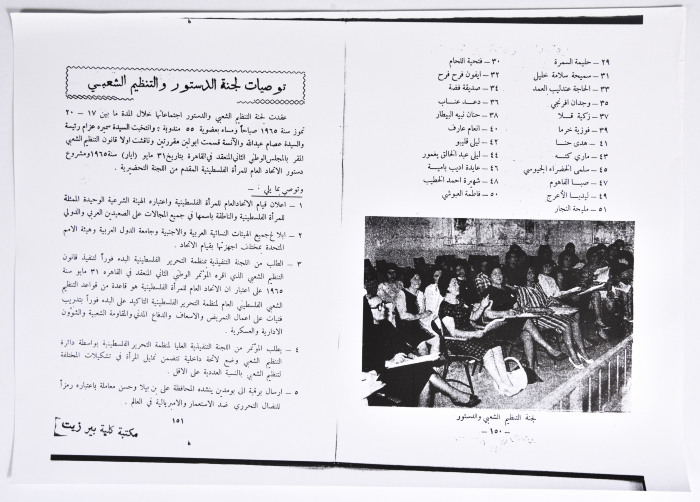 ٢٩ – حليمة السمرة
٣٠ – فتحية اللحام
٣١ – سميحة سلامة خليل
٣٢ – ايفون فرح فرح
٣٣ – الحاجة عندليب العمد
٣٤ – صديقة فضة
٣٥ – وجدان افرنجي
٣٦ – دعد عناب
٣٧ – زكية قملا
٣٨ – حنان نبيه البيطار
٣٩ – فوزية خرما
٤٠ – انعام عارف
٤١ – هدى حنا
٤٢ – ليلى قليبو
٤٣ – ماري كتـه
٤٤ – ليلى عبد الخالق يغمور
٤٥ – سلمى الخضراء الجيوسي
٤٦ – عايدة اديب بامية
٤٧ – صبا الفاهوم
٤٨ – شهيرة احمد الخطيب
٤٩ – ليديا الأعرج
٥٠ – فاطمة العبوشي
٥١ – مليحة النجار
لجنة التنظيم الشعبي والدستور
– ١٥٠ –
توصيات لجنة الدستور والتنظيم الشعبي
عقدت لجنة التنظيم الشعبي والدستور اجتماعاتها خلال المدة ما بين ١٧ – ٢٠
تموز سنة ١٩٦٥ صباحاً ومساء بعضوية ٥٥ مندوبة ، وانتخبت السيدة سميره عزام رئيسة
والسيدة عصام عبدالله والآنسة قسمت ابولبن مقررتين وناقشت اولا قانون التنظيم الشعبي
المقر بالمجلس الوطني الثاني المنعقد في القاهرة بتاريخ ٣١ مايو (أيار) سنة ١٩٦٥ ومشروع
دستور الاتحاد العام للمرأة الفلسطينية المقدم من اللجنة التحضيرية .
وتوصي بما يلي : –
١ – اعلان قيام الاتحاد العام للمرأة الفلسطينية واعتباره الهيئة الشرعية الوحيدة الممثلة
للمرأة الفلسطينية والناطقة باسمها في جميع المجالات على الصعيدين العربي والدولي
٢ – ابلاغ جميع الهيئات النسائية العربية والاجنبية وجامعة الدول العربية وهيئة الامم
المتحدة بمختلف اجهزتها بقيام الاتحاد .
٣ – الطلب من اللجنة التنفيذية لمنظمة التحرير الفلسطينية البدء فوراً لتنفيذ قانون
التنظيم الشعبي الذي اقره المؤتمر الوطني الثاني المنعقد في القاهره ٣١ مايو سنة
١٩٦٥ على اعتبار ان الاتحاد العام للمرأة الفلسطينية هو قاعدة من قواعد التنظيم
الشعبي الفلسطيني العام لمنظمة التحرير الفلسطينية التأكيد على البدء فوراً بتدريب
فتيات على اعمال التمريض والاسعاف والدفاع المدني والمقاومة الشعبية والشؤون
الادارية والعسكرية .
٤ – يطلب المؤتمر من اللجنة التنفيذية العليا لمنظمة التحرير الفلسطينية بواسطة دائرة
التنظيم الشعبي وضع لائحة داخلية تتضمن تمثيل المرأة في تشكيلات المختلفة
لتنظيم الشعبي بالنسبة العددية على الاقل .
٥ – ارسال برقية الى بومدين ينشده المحافظة على بن بيلا وحسن معاملة باعتباره رمزاً
للنضال التحرري ضد الاستعمار والامبريالية في العالم .
١٥١
مكتبة كلية بير زيت